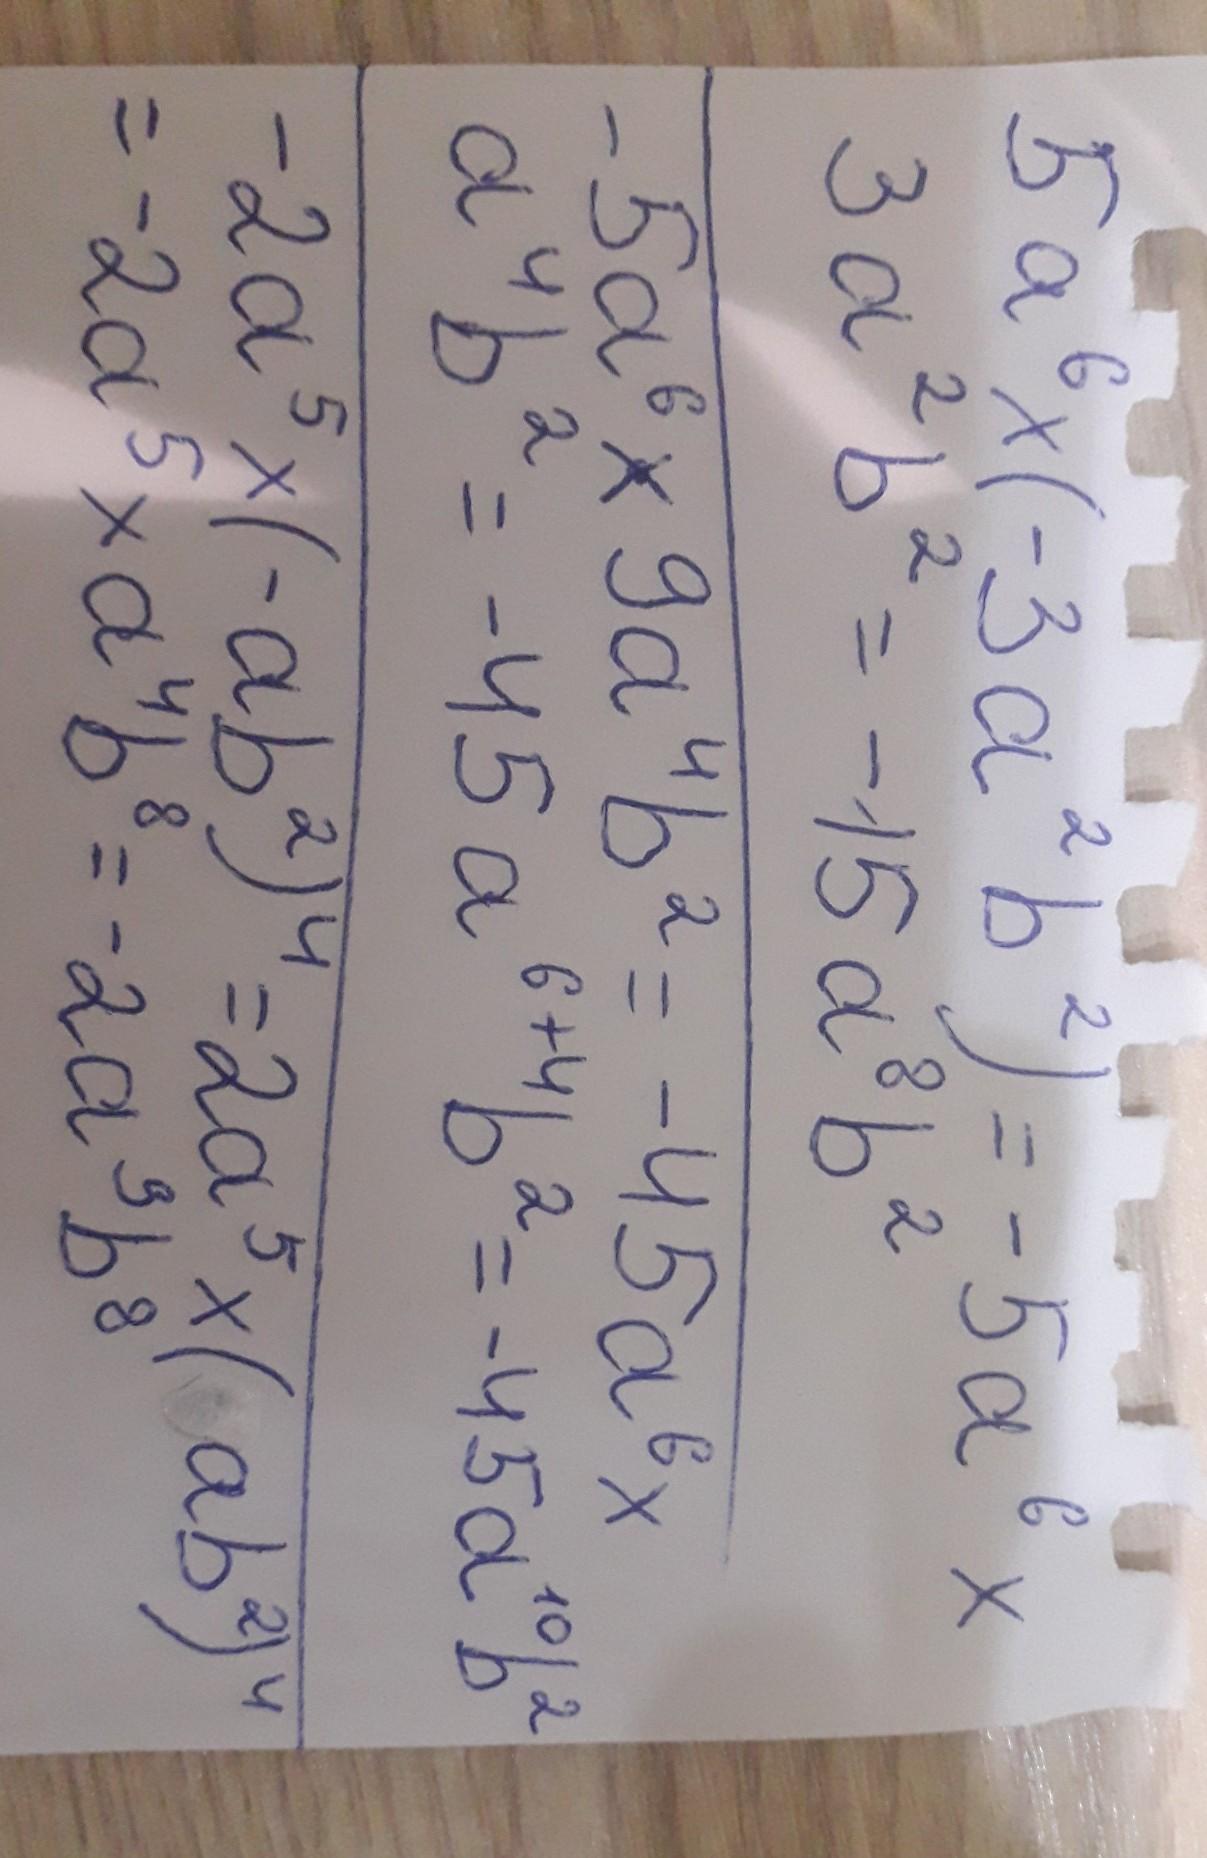 5a⁶×(-3a²b²)=-5a⁶×
3a²b²=-15a⁸b²
-5a⁶×9a⁴b²=-45a⁶×
a⁴b²=-45a⁶⁺⁴b²=-45a¹⁰b²
-2a⁵×(-ab²)⁴=2a⁵×(ab²)⁴
=-2a⁵×a⁴b⁸=-2a⁹b⁸